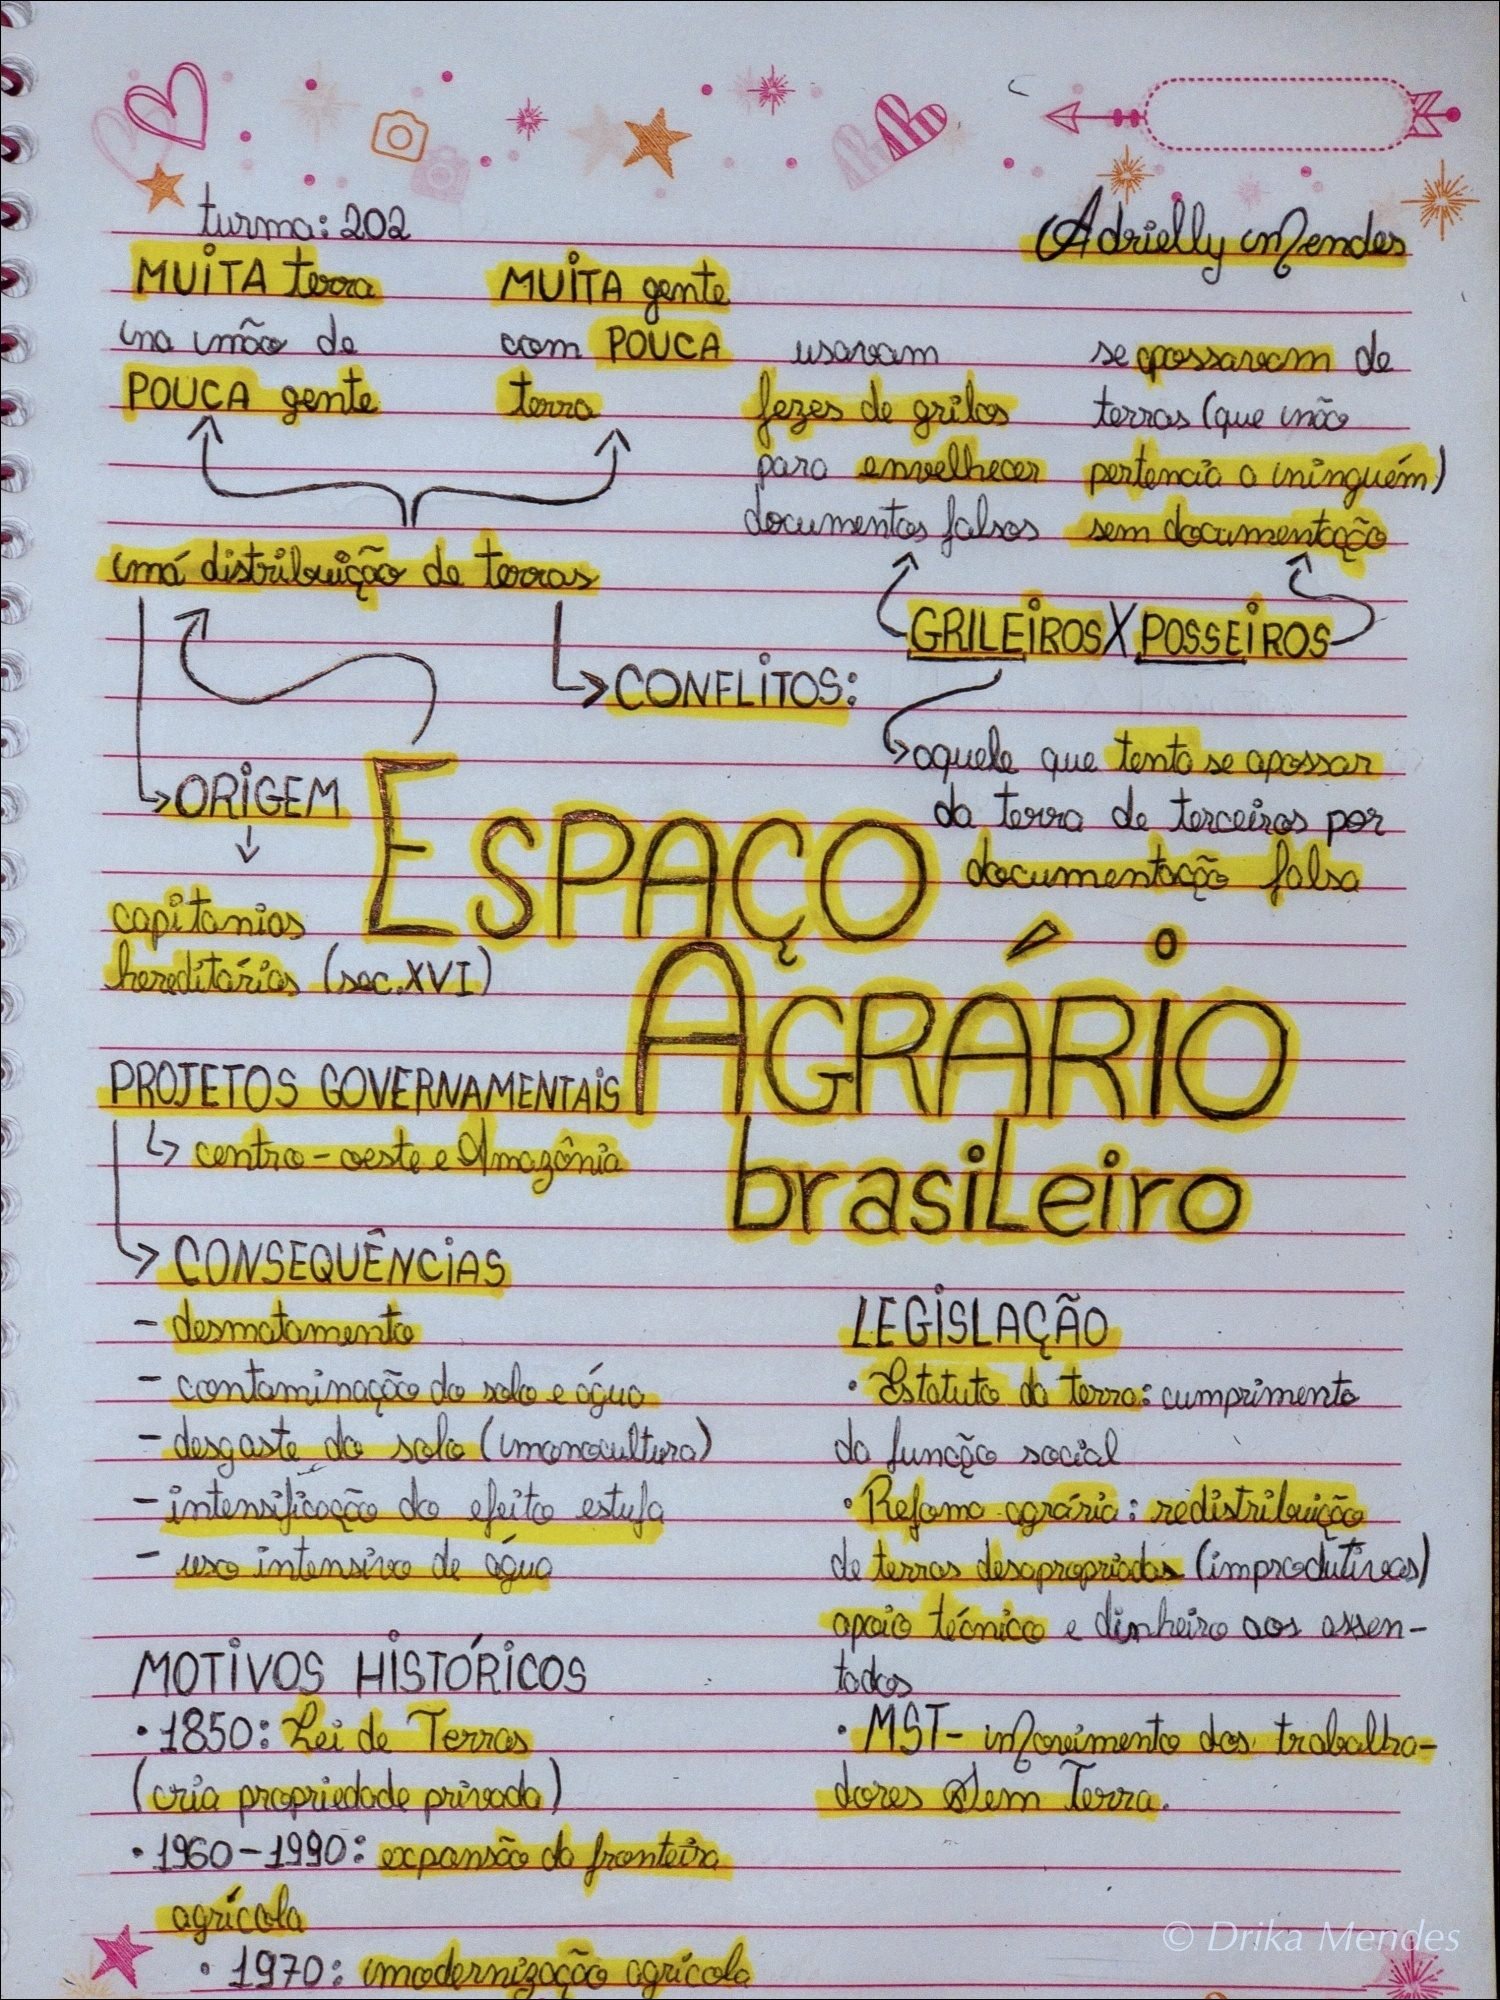 turma: 202
Adrielly Mendes
MUITA terra
na mão de
POUCA gente
MUITA gente
com POUCA
terra
usavam
fezes de grilos
para envelhecer
documentos falsos
se apossavam de
terras (que não
pertencia a ninguém)
sem documentação
má distribuição de terras
GRILEIROS X POSSEIROS
CONFLITOS:
aquele que tenta se apossar
da terra de terceiros por
documentação falsa
ORIGEM
capitanias
hereditárias (sec. XVI)
ESPAÇO
AGRÁRIO
brasileiro
PROJETOS GOVERNAMENTAIS
centro-oeste e Amazônia
CONSEQUÊNCIAS
- desmatamento
- contaminação do solo e água
- desgaste do solo (monocultura)
- intensificação do efeito estufa
- uso intensivo de água
MOTIVOS HISTÓRICOS
• 1850: Lei de Terras
(cria propriedade privada)
• 1960-1990: expansão da fronteira
agrícola
• 1970: modernização agrícola
LEGISLAÇÃO
• Estatuto da terra: cumprimento
da função social
• Refoma agrária: redistribuição
de terras desapropriadas (improdutivas)
apoio técnico e dinheiro aos assen-
tados
• MST- Movimento dos trabalha-
dores Sem Terra.
© Drika Mendes